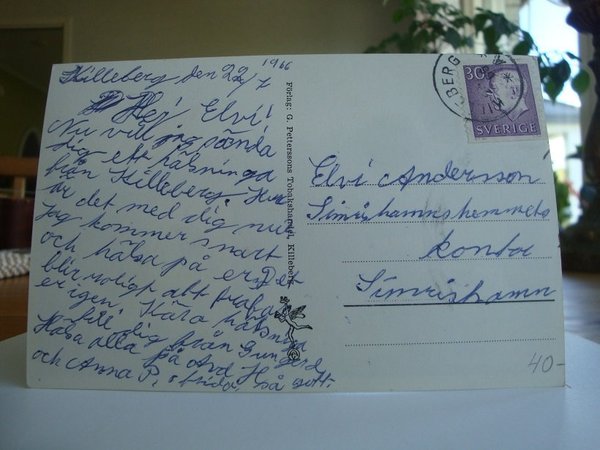 Killeberg den 22/7 1966
Hej Elvi
Nu vill jag sända
dig ett hälsninga
från Killeberg. Hur
är det med dig nu
Jag kommer snart
och hälsa på er Det
blir roligt att träffa
er igen. Kära hälsninga
till dig från Gun
Hälsa alla på
och Anna P. så gott.
Förlag: G. Petterssons Tobakshandel, Killeberg
30
SVERIGE
BERG
Elvi Andersson
Simrishamnshemmets
konto
Simrishamn
40-